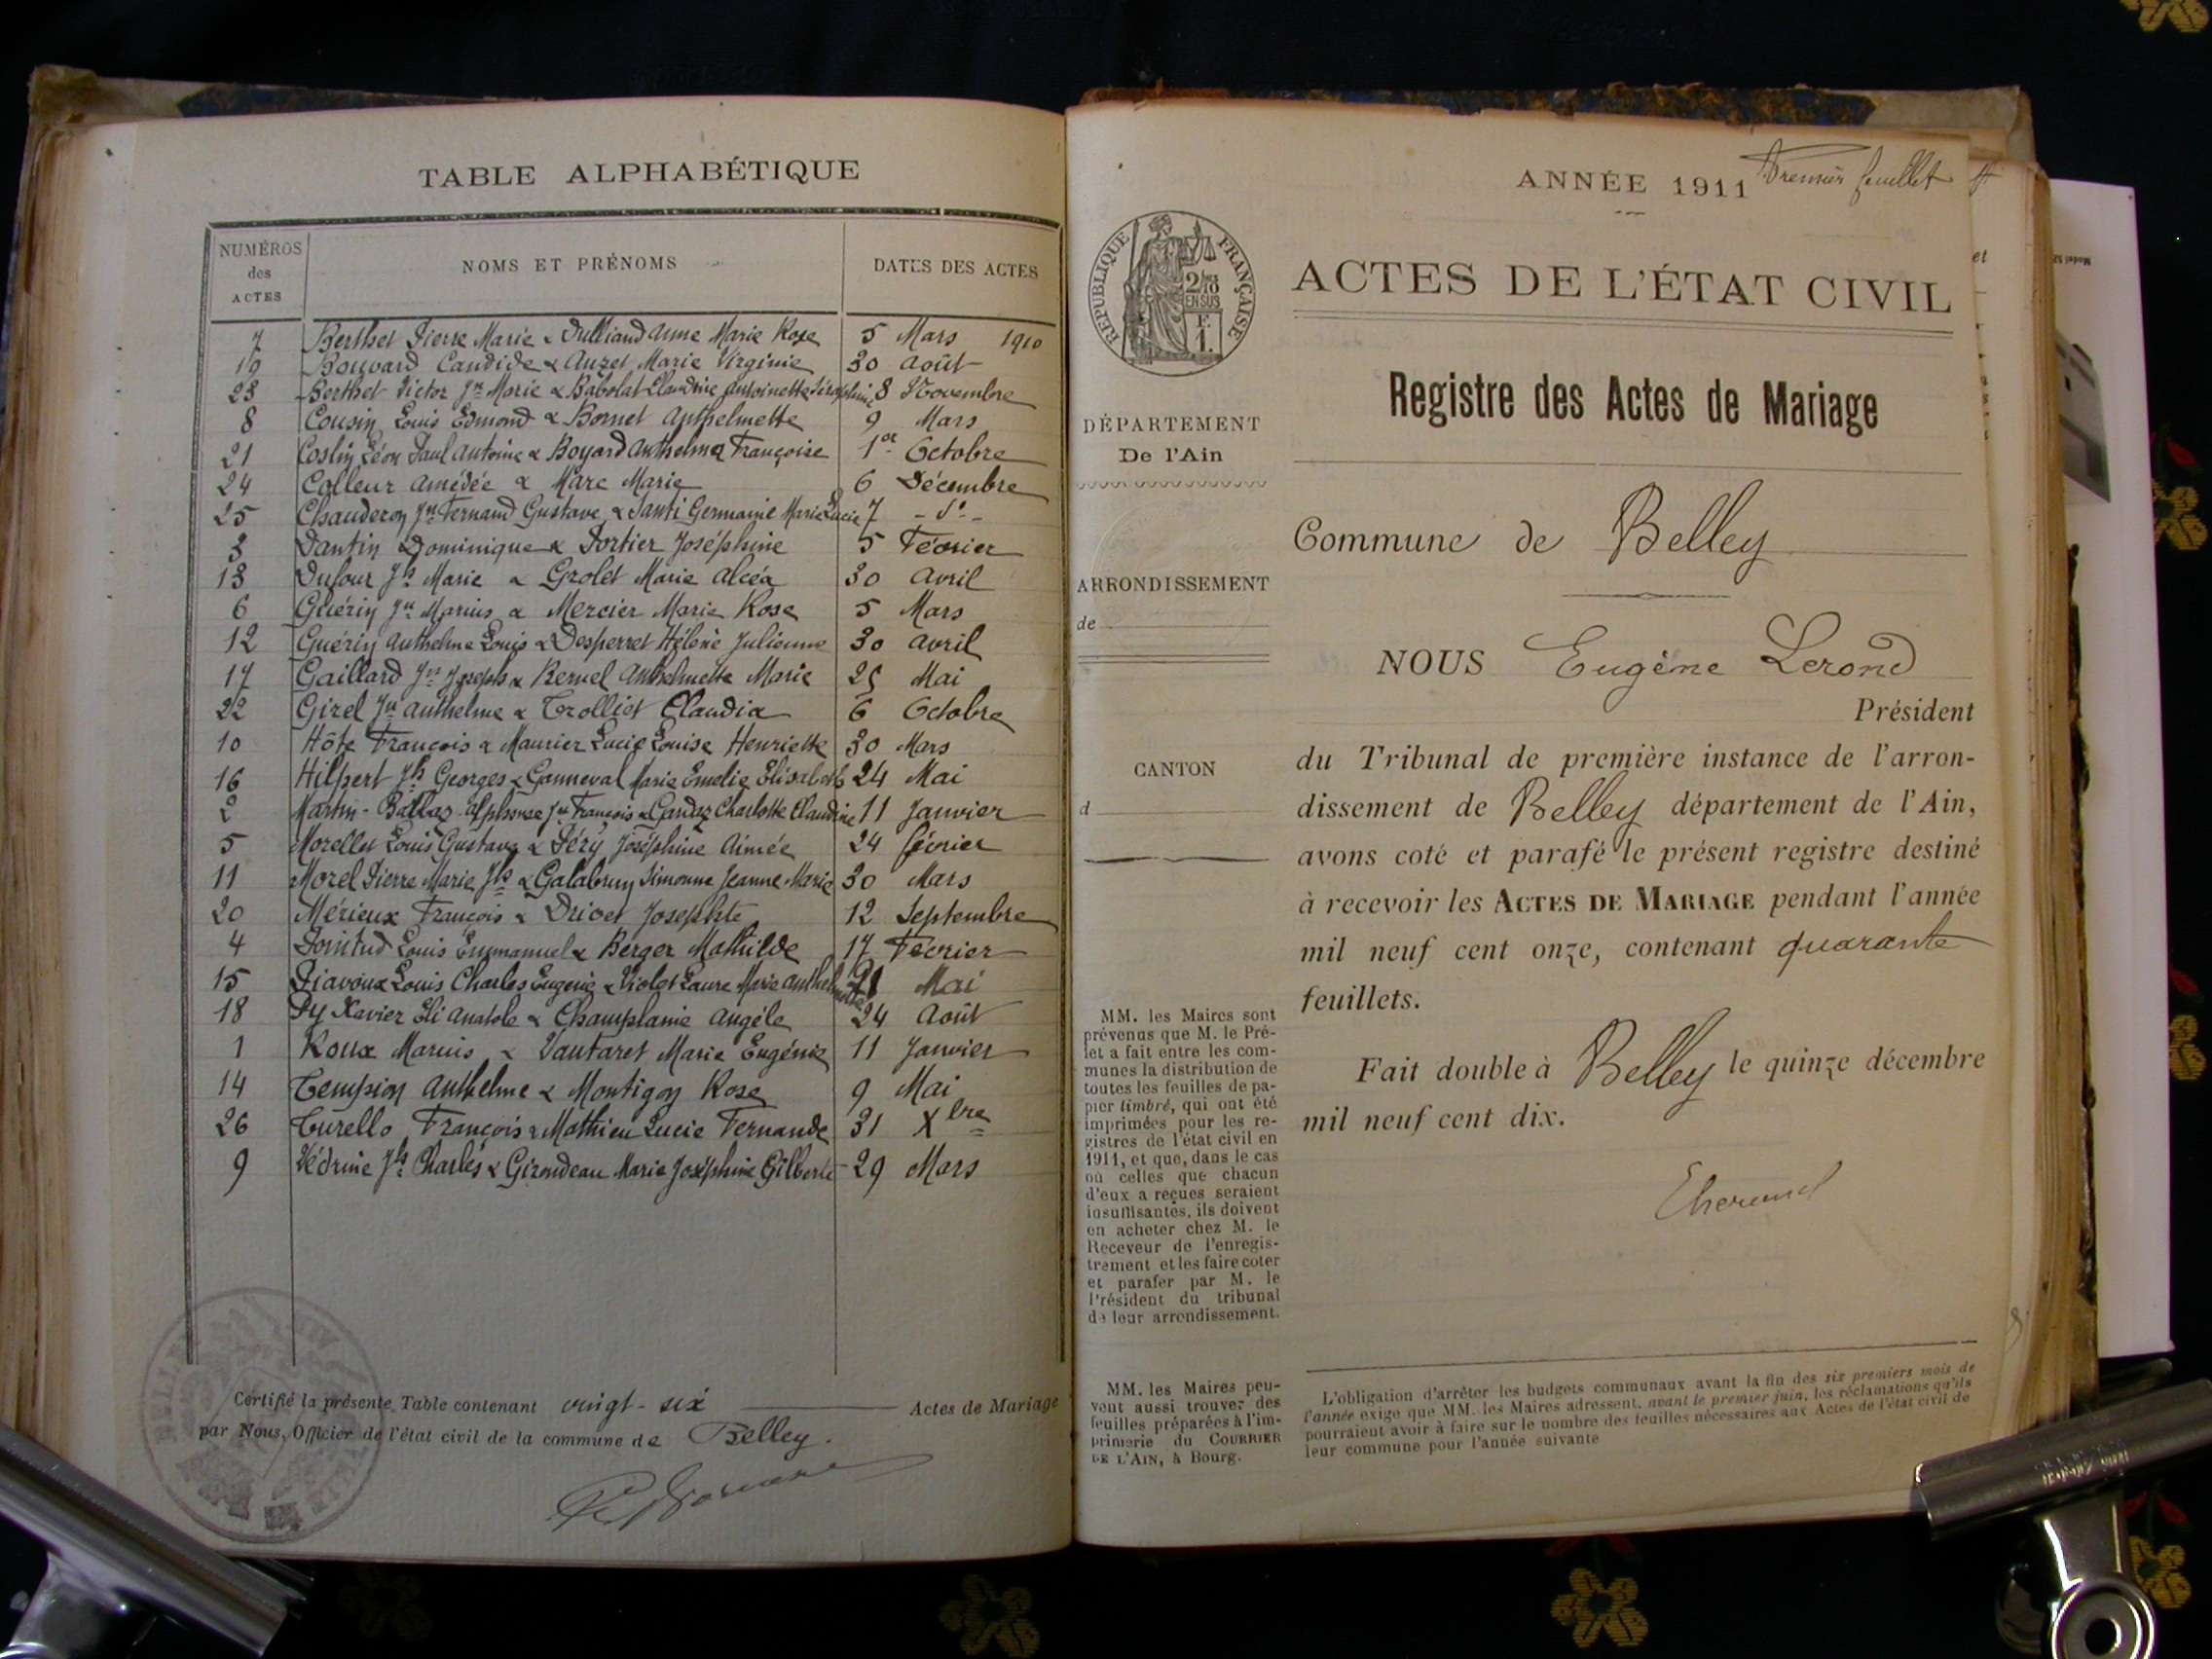 TABLE ALPHABÉTIQUE
NUMÉROS des ACTES
NOMS ET PRÉNOMS
DATES DES ACTES
7 Berthet Pierre Marie & Dulliand Anne Marie Rose 5 Mars 1910
19 Bouvard Candide & Auzet Marie Virginie 30 Août
23 Berthet Victor Jn Marie & Babolat Claudine Antoinette Séraphine 8 Novembre
8 Cousin Louis Edmond & Bornet Anthelmette 9 Mars
21 Coslin Léon Paul Antoine & Boyard Anthelme Françoise 1er Octobre
24 Colleur Amédée & Marc Marie 6 Décembre
25 Chauderon Jn Fernand Gustave & Santi Germaine Marie Lucie 7 - do -
3 Dantin Dominique & Portier Joséphine 5 Février
13 Dufour Jh Marie & Grolet Marie Alcéa 30 Avril
6 Guérin Jn Marius & Mercier Marie Rose 5 Mars
12 Guérin Anthelme Louis & Desperret Hélène Julienne 30 Avril
17 Gaillard Jn Joseph & Remel Anthelmette Marie 25 Mai
22 Girel Jn Anthelme & Trolliet Claudia 6 Octobre
10 Hôte François & Maurier Lucie Louise Henriette 30 Mars
16 Hilpert Jh Georges & Ganneval Marie Emelie Elisabeth 24 Mai
2 Martin-Ballaz Alphonse Jn François & Gardaz Charlotte Claudine 11 Janvier
5 Morellet Louis Gustave & Féry Joséphine Aimée 24 février
11 Morel Pierre Marie Jh & Galabrun Simonne Jeanne Marie 30 Mars
20 Mérieux François & Drivet Josephte 12 Septembre
4 Pointud Louis Emmanuel & Berger Mathilde 17 Février
15 Piavoux Louis Charles Eugène & Violet Laure Marie Anthelmette 21 Mai
18 Py Xavier Eli Anatole & Champlanie Angèle 24 Août
1 Roux Marius & Vautaret Marie Eugénie 11 Janvier
14 Tempion Anthelme & Montigon Rose 9 Mai
26 Turello François & Mathieu Lucie Fernande 31 Xbre
9 Védrine Jh Charles & Girondeau Marie Joséphine Gilberte 29 Mars
Certifié la présente Table contenant vingt-six Actes de Mariage
par Nous, Officier de l'état civil de la commune de Belley.
ANNÉE 1911 Premier feuillet
RÉPUBLIQUE FRANÇAISE
2/10 EN SUS
F. 1.
ACTES DE L'ÉTAT CIVIL
Registre des Actes de Mariage
DÉPARTEMENT
De l'Ain
Commune de Belley
ARRONDISSEMENT
de
NOUS Eugène Lerond
Président
CANTON
d
du Tribunal de première instance de l'arron-
dissement de Belley département de l'Ain,
avons coté et parafé le présent registre destiné
à recevoir les ACTES DE MARIAGE pendant l'année
mil neuf cent onze, contenant quarante
feuillets.
Fait double à Belley le quinze décembre
mil neuf cent dix.
MM. les Maires sont
prévenus que M. le Pré-
fet a fait entre les com-
munes la distribution de
toutes les feuilles de pa-
pier timbré, qui ont été
imprimées pour les re-
gistres de l'état civil en
1911, et que, dans le cas
où celles que chacun
d'eux a reçues seraient
insuffisantes, ils doivent
en acheter chez M. le
Receveur de l'enregis-
trement et les faire coter
et parafer par M. le
Président du tribunal
de leur arrondissement.
MM. les Maires peu-
vent aussi trouver des
feuilles préparées à l'im-
primerie du COURRIER
DE L'AIN, à Bourg.
L'obligation d'arrêter les budgets communaux avant la fin des six premiers mois de
l'année exige que MM. les Maires adressent, avant le premier juin, les réclamations qu'ils
pourraient avoir à faire sur le nombre des feuilles nécessaires aux Actes de l'état civil de
leur commune pour l'année suivante